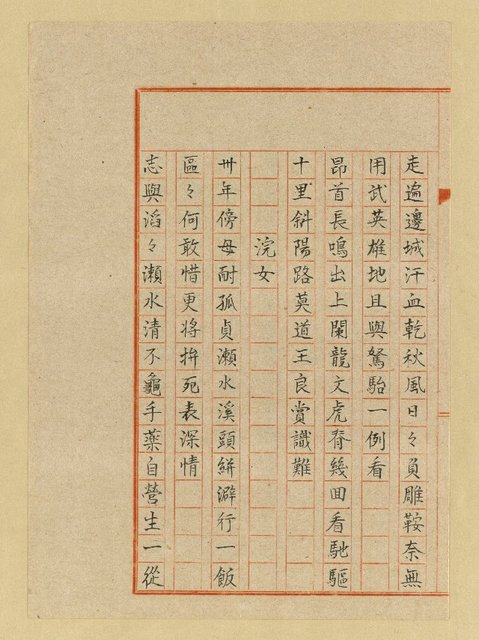 走遍邊城汗血乾秋風日々負雕鞍奈無
用武英雄地且與駑駘一例看
昂首長鳴出上闌龍文虎脊幾回看馳驅
十里斜陽路莫道王良賞識難
浣女
卅年傍母耐孤貞瀨水溪頭絣澼行一飯
區々何敢惜更将拚死表深情
志與滔々瀨水清不龜手藥自營生一從